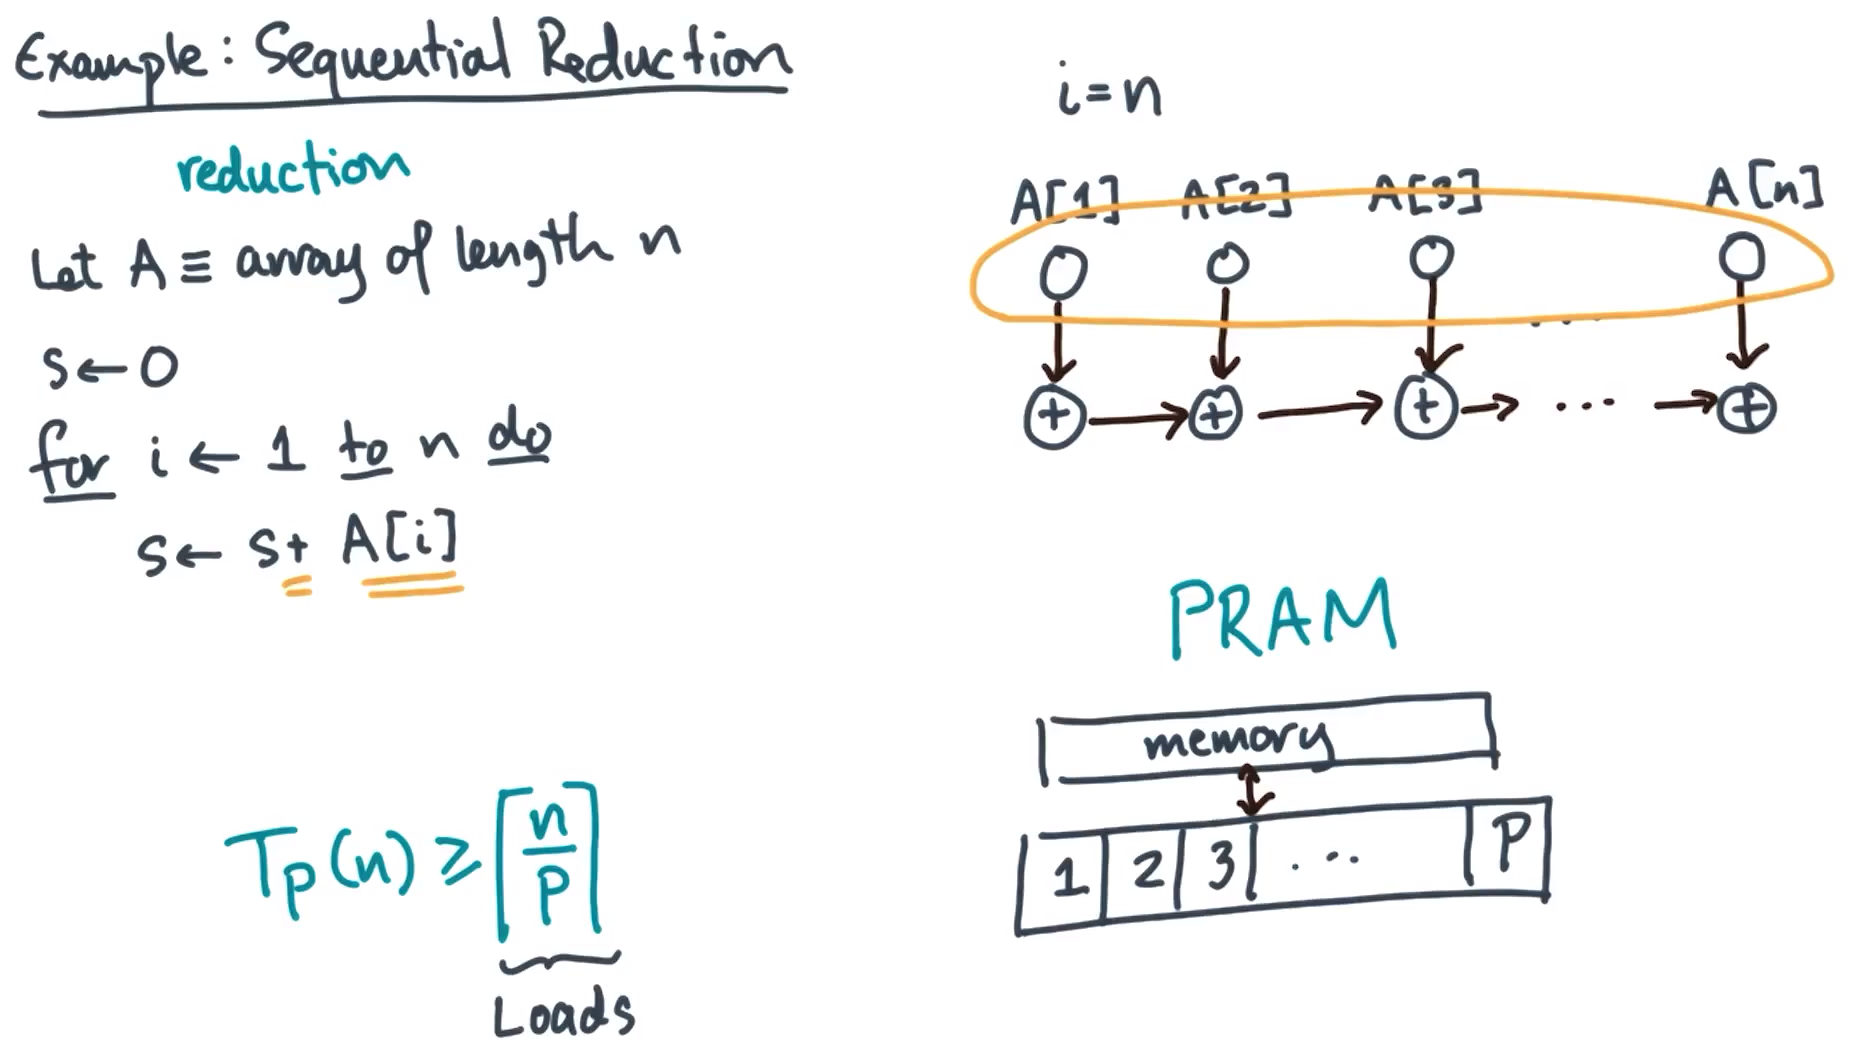 Example: Sequential Reduction
reduction
Let A ≡ array of length n
s ← 0
for i ← 1 to n do
s ← s + A[i]
T_p(n) ≥ ⌈n/P⌉
Loads
i = n
A[1] A[2] A[3] A[n]
...
+ → + → + → ... → +
PRAM
memory
1 2 3 ... P